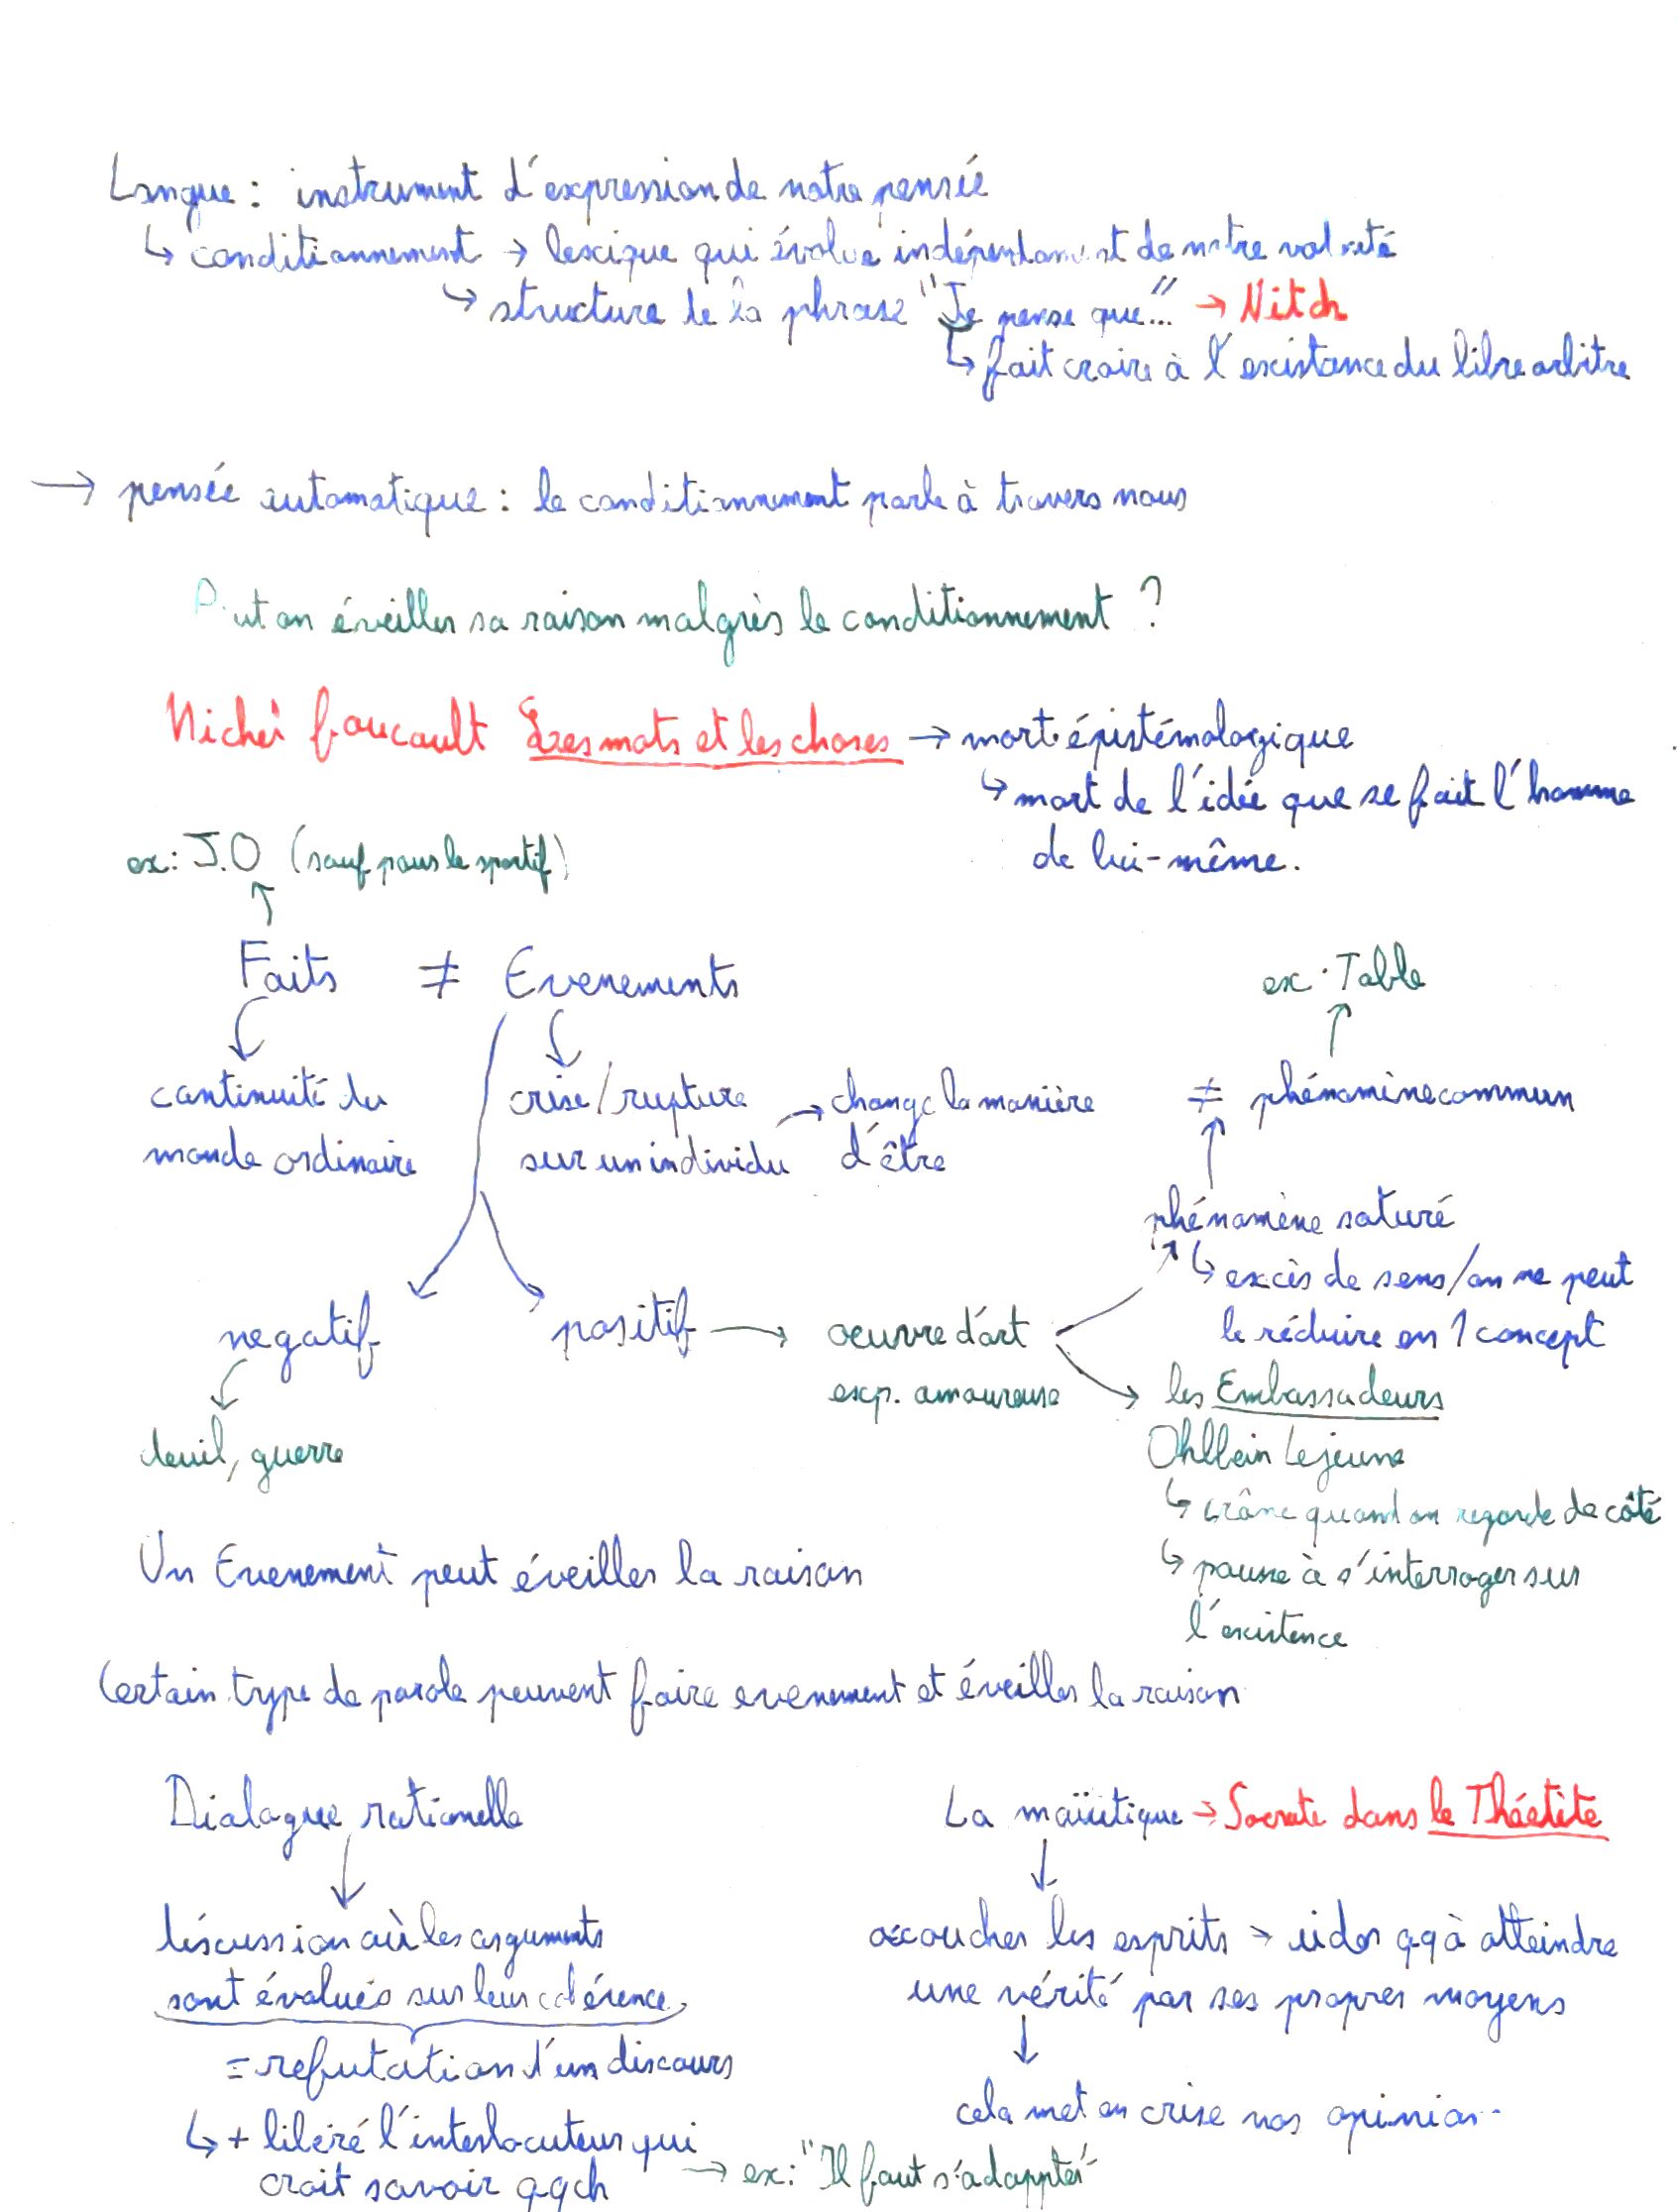 Langue : instrument d'expression de notre pensée
↳ conditionnement → lexique qui évolue indépendament de notre volonté
↳ structure de la phrase "Je pense que..." → Nitch
↳ fait croire à l'existance du libre arbitre
→ pensée automatique : le conditionnement parle à travers nous
Peut on éveiller sa raison malgrès le conditionnement ?
Michel foucault Les mots et les choses → mort épistémologique
↳ mort de l'idée que se fait l'homme
de lui-même.
ex : J.O (sauf pour le sportif)
↑
Faits ≠ Evenements
ex : Table
↑
continuité du
monde ordinaire
crise / rupture
sur un individu
→ change la manière
d'être
≠ phénomène commun
↑
phénomène saturé
↳ excès de sens / on ne peut
le réduire en 1 concept
negatif
positif → oeuvre d'art
exp. amoureuse
→ les Embassadeurs
Ohlbein Lejeune
↳ crâne quand on regarde de côté
↳ pousse à s'interroger sur
l'existence
deuil, guerre
Un Evenement peut éveiller la raison
Certain type de parole peuvent faire evenement et éveiller la raison
Dialogue rationelle
discussion où les arguments
sont évalués sur leur cohérence
= refutation d'un discours
↳ + libéré l'interlocuteur qui
croit savoir qqch
→ ex : "Il faut s'adappter"
La maïeutique → Socrate dans le Théétète
↓
accoucher les esprits → aider qq à atteindre
une vérité par ses propres moyens
↓
cela met en crise nos opinion..